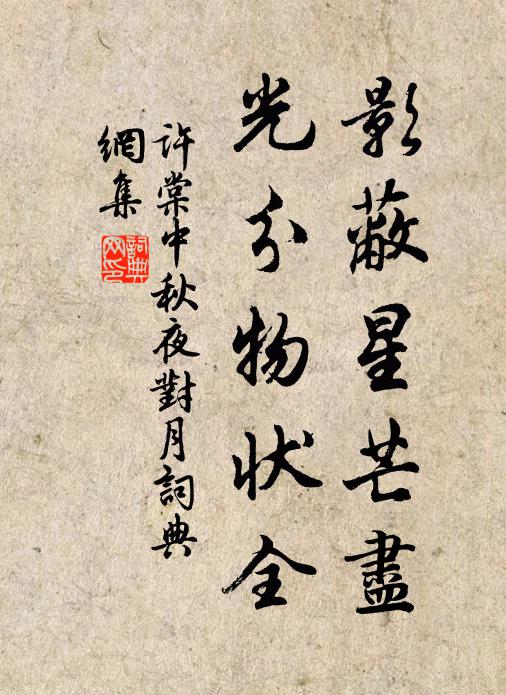 影蔽星芒盡
光分物状全
許棠中秋夜對月詞典
網集
詞典
网印